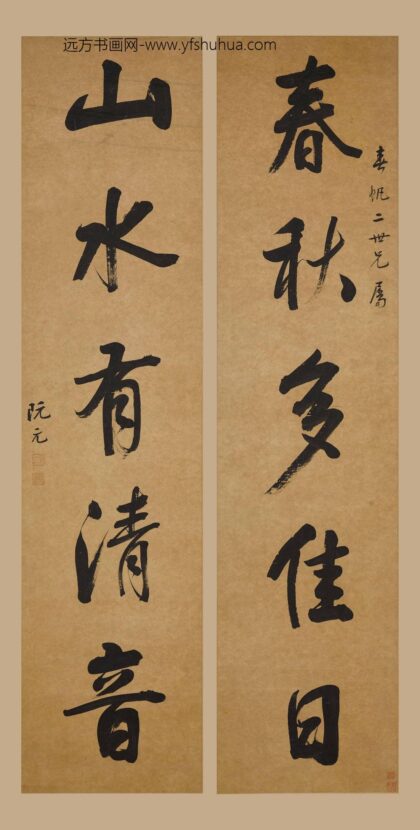 远方书画网-www.yfshuhua.com
春秋多佳日
春帆二世兄属
山水有清音
阮元